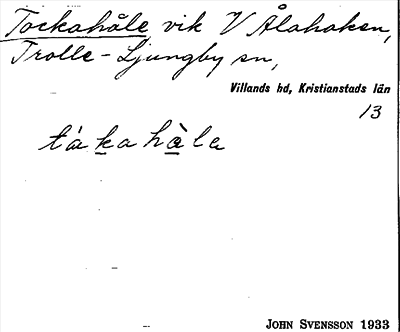 Tockahåle, vik V Ålahaken,
Trolle-Ljungby sn,
Villands hd, Kristianstads län
13
tákahàla
JOHN SVENSSON 1933